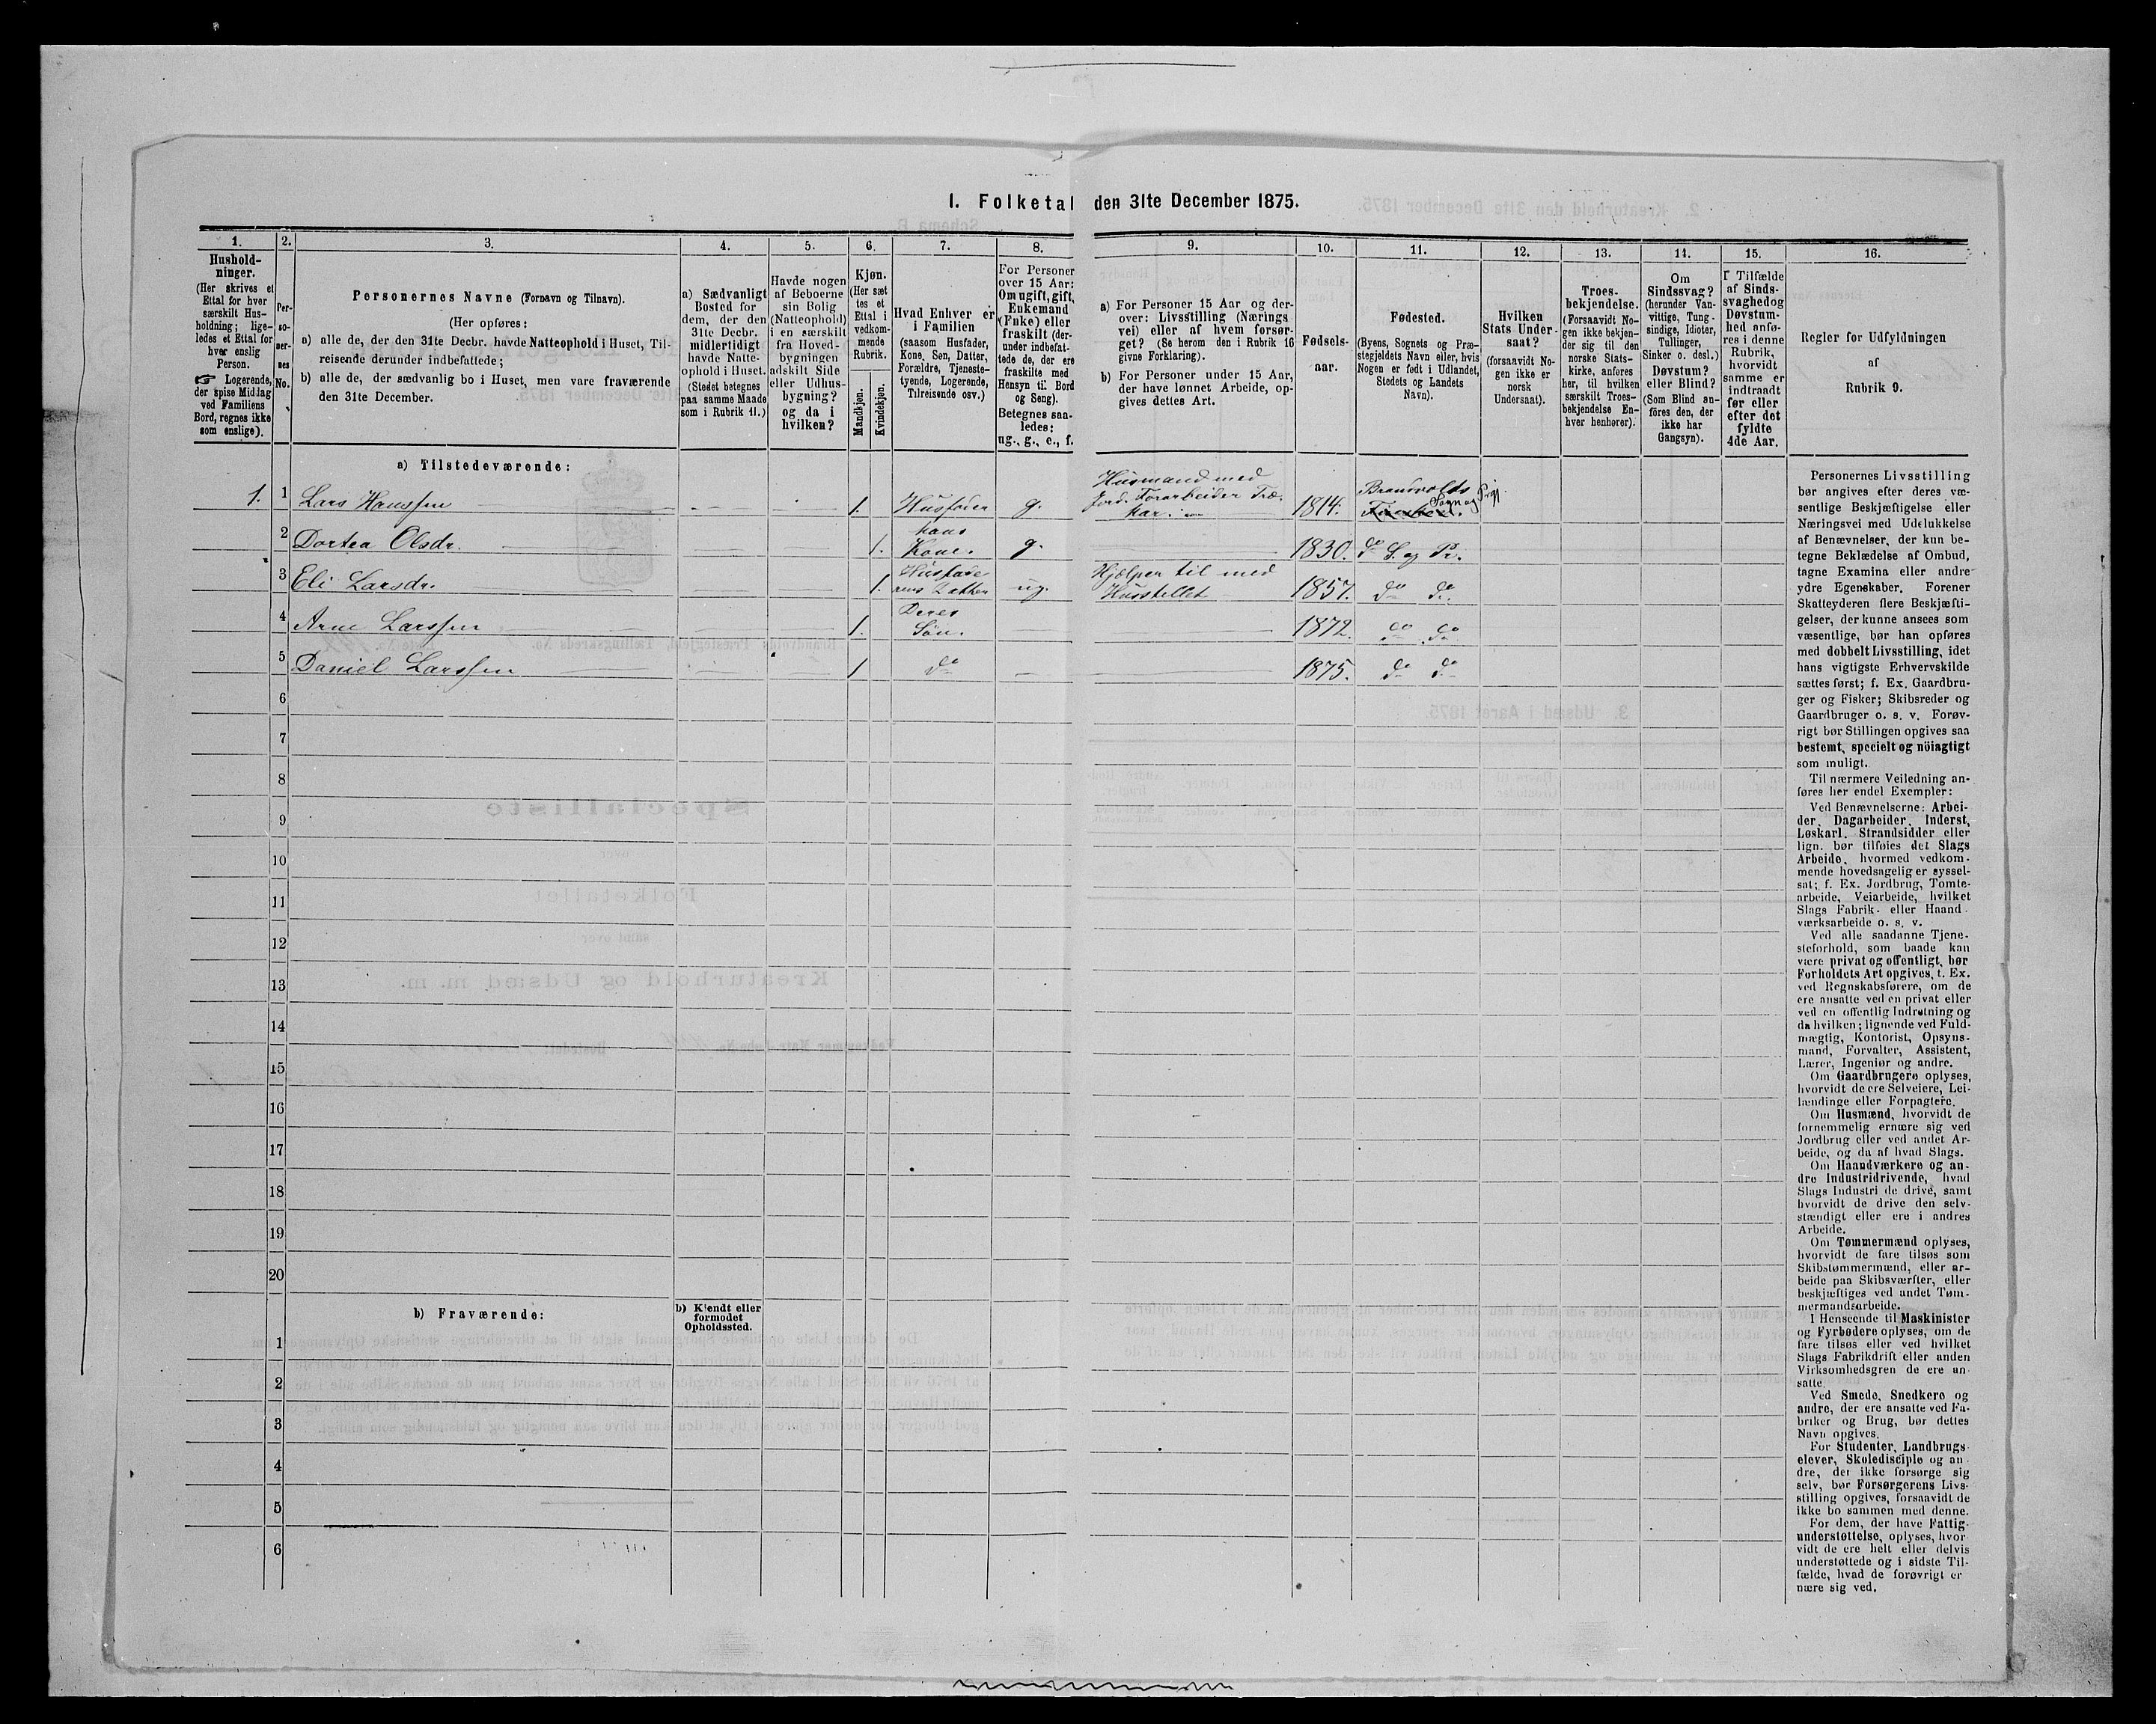 1. Folketal den 31te December 1875.
1.
2.
3.
4.
5.
6.
7.
8.
9.
10.
11.
12.
13.
14.
15.
16.
Hushold-
ninger.
(Her skrives et
Ettal for hver
særskilt Hus-
holdning; lige-
ledes et Ettal for
hver enslig
Person.
☞ Logerende,
der spise Middag
ved Familiens
Bord, regnes ikke
som enslige).
Per-
so-
ner-
nes
No.
Personernes Navne (Fornavn og Tilnavn).
(Her opføres:
a) alle de, der den 31te Decbr. havde Natteophold i Huset, Til-
reisende derunder indbefattede;
b) alle de, der sædvanlig bo i Huset, men vare fraværende
den 31te December.
a) Sædvanligt
Bosted for
dem, der den
31te Decbr.
midlertidigt
havde Natte-
ophold i Huset.
(Stedet betegnes
paa samme Maade
som i Rubrik 11.)
Havde nogen
af Beboerne
sin Bolig
(Natteophold)
i en særskilt
fra Hoved-
bygningen
adskilt Side
eller Udhus-
bygning?
og da i
hvilken?
Kjøn.
(Her sæt
tes et
Ettal i
vedkom-
mende
Rubrik.
Mandkjøn.
Kvindekjøn.
Hvad Enhver er
i Familien
(saasom Husfader,
Kone, Søn, Datter,
Forældre, Tjeneste-
tyende, Logerende,
Tilreisende osv.)
For Personer
over 15 Aar:
Om ugift, gift,
Enkemand
(Enke) eller
fraskilt (der-
under indbefat-
tede de, der ere
fraskilte med
Hensyn til Bord
og Seng).
Betegnes saa-
ledes:
ug., g., e., f.
a) For Personer 15 Aar og der-
over: Livsstilling (Nærings
vei) eller af hvem forsør-
get? (Se herom den i Rubrik 16
givne Forklaring).
b) For Personer under 15 Aar,
der have lønnet Arbeide, op-
gives dettes Art.
Fødsels-
aar.
Fødested.
(Byens, Sognets og Præ-
stegjeldets Navn eller, hvis
Nogen er født i Udlandet,
Stedets og Landets
Navn).
Hvilken
Stats Under-
saat?
(forsaavidt No-
gen ikke er
norsk
Undersaat).
Troes-
bekjendelse.
(Forsaavidt No-
gen ikke bekjen-
der sig til den
norske Stats-
kirke, anføres
her, til hvilken
særskilt Troes-
bekjendelse En-
hver henhører).
Om
Sindssvag?
(herunder Van-
vittige, Tung-
sindige, Idioter,
Tullinger,
Sinker o. desl.)
Døvstum?
eller Blind?
(Som Blind an-
föres den, der
ikke har
Gangsyn).
I Tilfælde
af Sinds-
svaghedog
Døvstum-
hed anfø-
res i denne
Rubrik,
hvorvidt
samme er
indtraadt
før eller
efter det
fyldte
4de Aar.
Regler for Udfyldningen
af
Rubrik 9.
a) Tilstedeværende:
1. 1 Lars Hanssen 1. Husfader g. Husmand med Jord. Forarbeider Træ-kar. 1814. Brandvolds Sogn og Prgj.
2 Dortea Olsdr. 1. hans Kone. g. 1830. do S. og Pr.
3 Eli Larsdr. 1. Husfaderens Datter ug. Hjælper til med Husstellet 1857. do do
4 Arne Larssen 1. Deres Søn. 1872. do do
5 Daniel Larssen 1 do 1875. do do
6
7
8
9
10
11
12
13
14
15
16
17
18
19
20
b) Fraværende:
b) Kjendt eller
formodet
Opholdssted.
1
2
3
4
5
6
Personernes Livsstilling
bør angives efter deres væ-
sentlige Beskjæftigelse eller
Næringsvei med Udelukkelse
af Benævnelser, der kun be-
tegne Beklædelse af Ombud,
tagne Examina eller andre
ydre Egenskaber. Forener
Skatteyderen flere Beskjæfti-
gelser, der kunne ansees som
væsentlige, bør han opføres
med dobbelt Livsstilling, idet
hans vigtigste Erhvervskilde
sættes først; f. Ex. Gaardbru-
ger og Fisker; Skibsreder og
Gaardbruger o. s. v. Forøv-
rigt bør Stillingen opgives saa
bestemt, specielt og nöiagtigt
som muligt.
Til nærmere Veiledning an-
føres her endel Exempler:
Ved Benævnelserne: Arbei-
der, Dagarbeider, Inderst,
Løskarl, Strandsidder eller
lign. bør tilføies det Slags
Arbeide, hvormed vedkom-
mende hovedsagelig er syssel-
sat; f. Ex. Jordbrug, Tomte-
arbeide, Veiarbeide, hvilket
Slags Fabrik- eller Haand-
værksarbeide o. s. v.
Ved alle saadanne Tjene-
steforhold, som baade kan
være privat og offentligt, bør
Forholdets Art opgives, f. Ex.
ved Regnskabsførere, om de
ere ansatte ved en privat eller
ved en offentlig Indretning og
da hvilken; lignende ved Fuld-
mægtig, Kontorist, Opsyns-
mand, Forvalter, Assistent,
Lærer, Ingeniør og andre.
Om Gaardbrugere oplyses,
hvorvidt de ere Selveiere, Lei-
lændinge eller Forpagtere.
Om Husmænd, hvorvidt de
fornemmelig ernære sig ved
Jordbrug eller ved andet Ar-
beide, og da af hvad Slags.
Om Haandværkere og an-
dre Industridrivende, hvad
Slags Industri de drive, samt
hvorvidt de drive den selv-
stændigt eller ere i andres
Arbeide.
Om Tømmermænd oplyses,
hvorvidt de fare tilsøs som
Skibstømmermænd, eller ar-
beide paa Skibsværfter, eller
beskjæftiges ved andet Tøm-
mermandsarbeide.
I Henseende til Maskinister
og Fyrbødere oplyses, om de
fare tilsøs eller ved hvilket
Slags Fabrikdrift eller anden
Virksomhedsgren de ere an-
satte.
Ved Smede, Snedkere og
andre, der ere ansatte ved Fa-
briker og Brug, bør dettes
Navn opgives.
For Studenter, Landbrugs-
elever, Skoledisciple og an-
dre, der ikke forsørge sig
selv, bør Forsørgerens Livs-
stilling opgives, forsaavidt de
ikke bo sammen med denne.
For dem, der have Fattig-
understøttelse, oplyses, hvor-
vidt de ere helt eller delvis
understøttede og i sidste Til-
fælde, hvad de forøvrigt er-
nære sig ved.